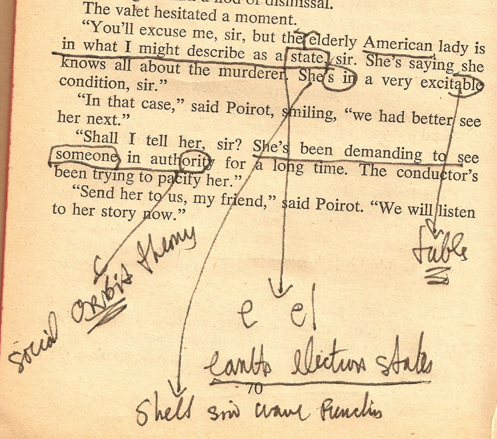 The valet hesitated a moment.
"You'll excuse me, sir, but the elderly American lady is
in what I might describe as a state, sir. She's saying she
knows all about the murderer. She's in a very excitable
condition, sir."
"In that case," said Poirot, smiling, "we had better see
her next."
"Shall I tell her, sir? She's been demanding to see
someone in authority for a long time. The conductor's
been trying to pacify her."
"Send her to us, my friend," said Poirot. "We will listen
to her story now."
social orbit theory
table
e el
electron states
70
Shell wave